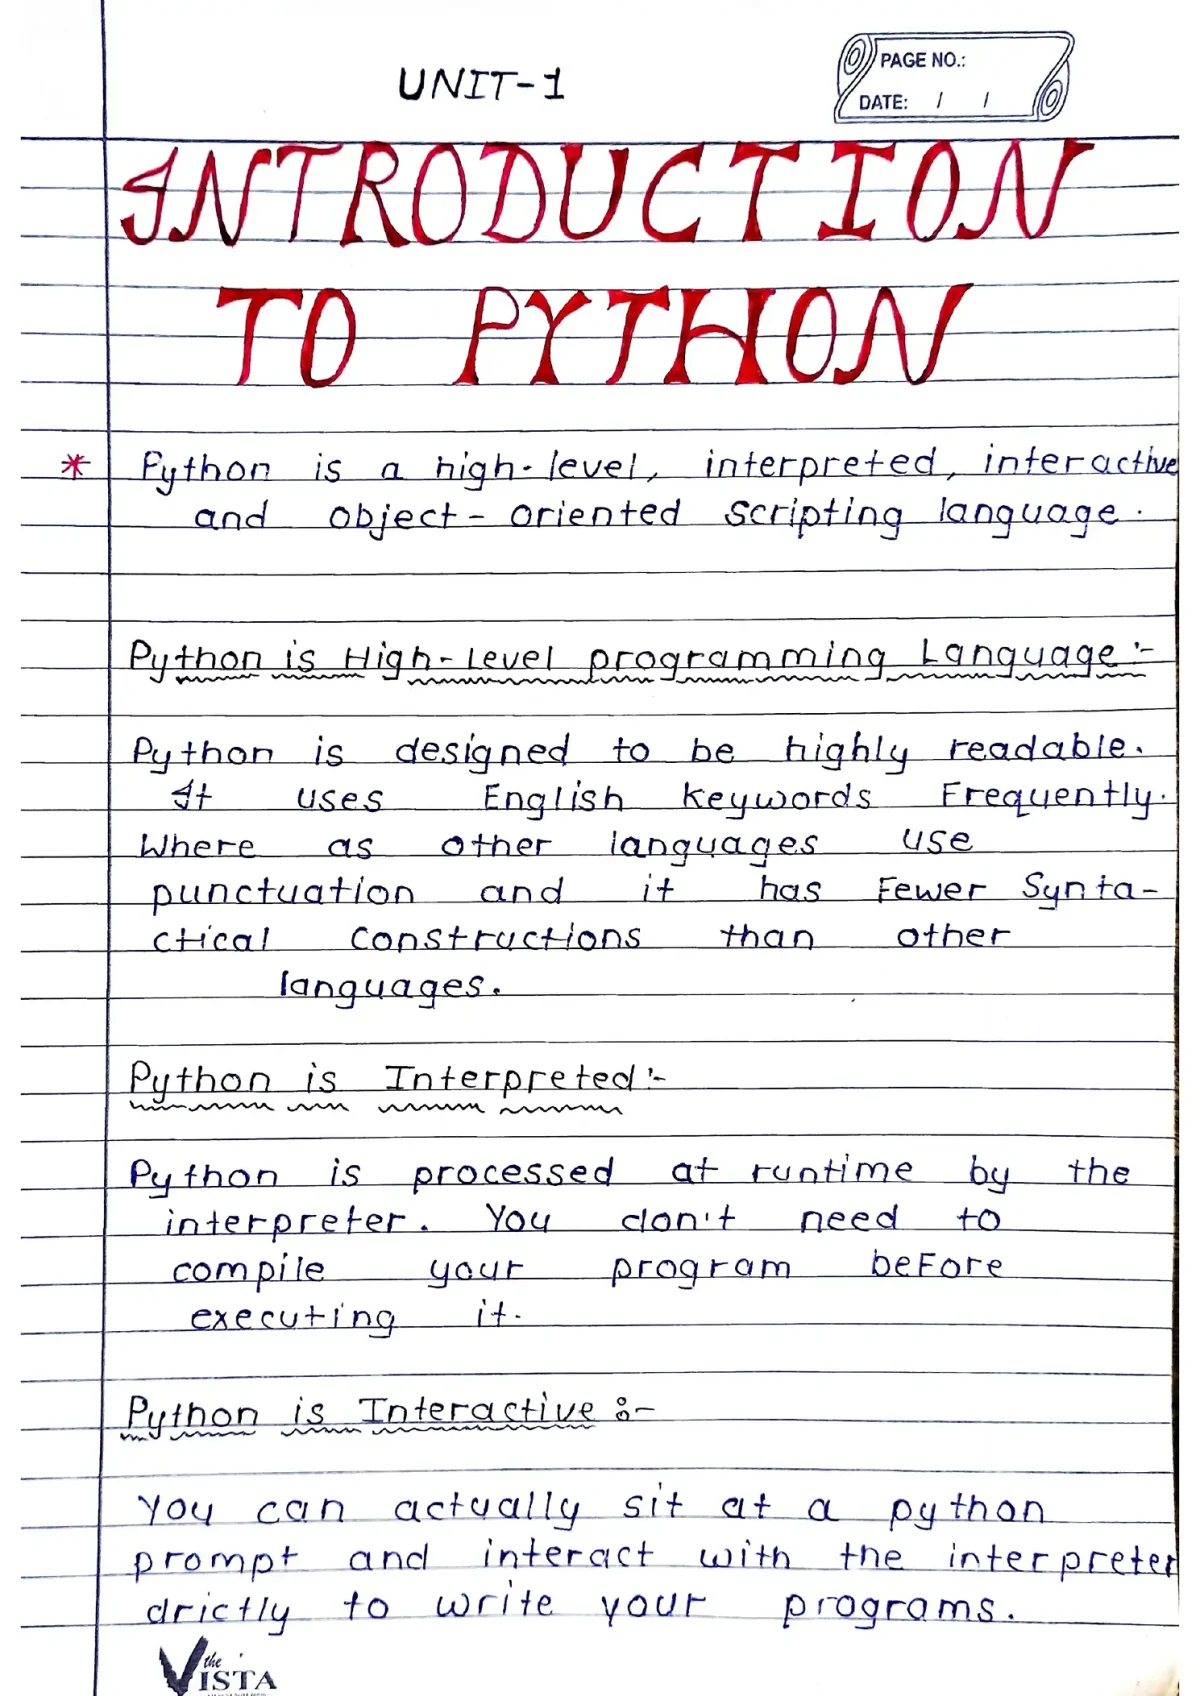 UNIT-1
PAGE NO.:
DATE: / /
INTRODUCTION
TO PYTHON
* Python is a high-level, interpreted, interactive
and object-oriented scripting language.
Python is High-Level programming Language :-
Python is designed to be highly readable.
It uses English keywords Frequently.
Where as other languages use
punctuation and it has Fewer Synta-
ctical constructions than other
languages.
Python is Interpreted :-
Python is processed at runtime by the
interpreter. You don't need to
compile your program beFore
executing it.
Python is Interactive :-
You can actually sit at a python
prompt and interact with the interpreter
drictly to write your programs.
the
VISTA